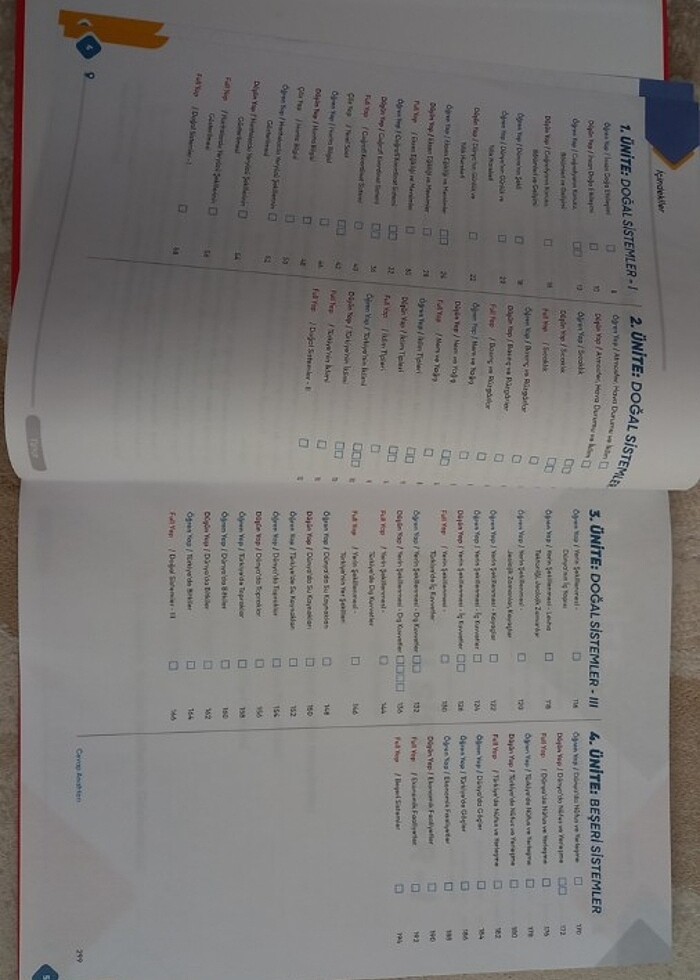 İçindekiler
1. ÜNİTE: DOĞAL SİSTEMLER - I
Öğren Yap / İnsan Doğa Etkileşimi 8
Düşün Yap / İnsan Doğa Etkileşimi 10
Öğren Yap / Coğrafyanın Konusu, 12
Bölümleri ve Gelişimi
Düşün Yap / Coğrafyanın Konusu, 16
Bölümleri ve Gelişimi
Öğren Yap / Dünya'nın Şekli 18
Öğren Yap / Dünya'nın Günlük ve 20
Yıllık Hareketi
Düşün Yap / Dünya'nın Günlük ve 22
Yıllık Hareketi
Öğren Yap / Eksen Eğikliği ve Mevsimler 26
Düşün Yap / Eksen Eğikliği ve Mevsimler 28
Full Yap / Eksen Eğikliği ve Mevsimler 30
Öğren Yap / Coğrafi Koordinat Sistemi 32
Düşün Yap / Coğrafi Koordinat Sistemi 36
Full Yap / Coğrafi Koordinat Sistemi 40
Çöz Yap / Yerel Saat 42
Öğren Yap / Harita Bilgisi
Düşün Yap / Harita Bilgisi 46
Çöz Yap / Harita Bilgisi 48
Öğren Yap / Haritalarda Yeryüzü Şekillerinin 50
Gösterilmesi 52
Düşün Yap / Haritalarda Yeryüzü Şekillerinin
Gösterilmesi 54
Full Yap / Haritalarda Yeryüzü Şekillerinin
Gösterilmesi 56
Full Yap / Doğal Sistemler - I 58
2. ÜNİTE: DOĞAL SİSTEMLE
Öğren Yap / Atmosfer, Hava Durumu ve İklim
Düşün Yap / Atmosfer, Hava Durumu ve İklim
Öğren Yap / Sıcaklık
Düşün Yap / Sıcaklık
Full Yap / Sıcaklık
Öğren Yap / Basınç ve Rüzgârlar
Düşün Yap / Basınç ve Rüzgârlar
Full Yap / Basınç ve Rüzgârlar
Öğren Yap / Nem ve Yağış
Düşün Yap / Nem ve Yağış
Full Yap / Nem ve Yağış
Öğren Yap / İklim Tipleri
Düşün Yap / İklim Tipleri
Full Yap / İklim Tipleri
Öğren Yap / Türkiye'nin İklimi
Düşün Yap / Türkiye'nin İklimi
Full Yap / Türkiye'nin İklimi
Full Yap / Doğal Sistemler - II
3. ÜNİTE: DOĞAL SİSTEMLER - III
Öğren Yap / Yerin Şekillenmesi - 116
Dünya'nın İç Yapısı
Öğren Yap / Yerin Şekillenmesi - Levha 118
Tektoniği, Jeolojik Zamanlar
Öğren Yap / Yerin Şekillenmesi - 120
Jeolojik Zamanlar, Kayaçlar
Öğren Yap / Yerin Şekillenmesi - Kayaçlar 122
Öğren Yap / Yerin Şekillenmesi - İç Kuvvetler 124
Düşün Yap / Yerin Şekillenmesi - İç Kuvvetler 126
Full Yap / Yerin Şekillenmesi - 130
Türkiye'de İç Kuvvetler
Öğren Yap / Yerin Şekillenmesi - Dış Kuvvetler 132
Düşün Yap / Yerin Şekillenmesi - Dış Kuvvetler 136
Full Yap / Yerin Şekillenmesi - 144
Türkiye'de Dış Kuvvetler
Full Yap / Yerin Şekillenmesi - 146
Türkiye'nin Yer Şekilleri
Öğren Yap / Dünya'da Su Kaynakları 148
Düşün Yap / Dünya'da Su Kaynakları 150
Öğren Yap / Türkiye'de Su Kaynakları 152
Öğren Yap / Dünya'da Topraklar 154
Düşün Yap / Dünya'da Topraklar 156
Öğren Yap / Türkiye'de Topraklar 158
Öğren Yap / Dünya'da Bitkiler 160
Düşün Yap / Dünya'da Bitkiler 162
Öğren Yap / Türkiye'de Bitkiler 164
Full Yap / Doğal Sistemler - III 166
4. ÜNİTE: BEŞERİ SİSTEMLER
Öğren Yap / Dünya'da Nüfus ve Yerleşme 170
Düşün Yap / Dünya'da Nüfus ve Yerleşme 172
Full Yap / Dünya'da Nüfus ve Yerleşme 176
Öğren Yap / Türkiye'de Nüfus ve Yerleşme 178
Düşün Yap / Türkiye'de Nüfus ve Yerleşme 180
Full Yap / Türkiye'de Nüfus ve Yerleşme 182
Öğren Yap / Dünya'da Göçler 184
Öğren Yap / Türkiye'de Göçler 186
Öğren Yap / Ekonomik Faaliyetler 188
Düşün Yap / Ekonomik Faaliyetler 190
Full Yap / Ekonomik Faaliyetler 192
Full Yap / Beşerî Sistemler 194
Cevap Anahtarı 299
4
5